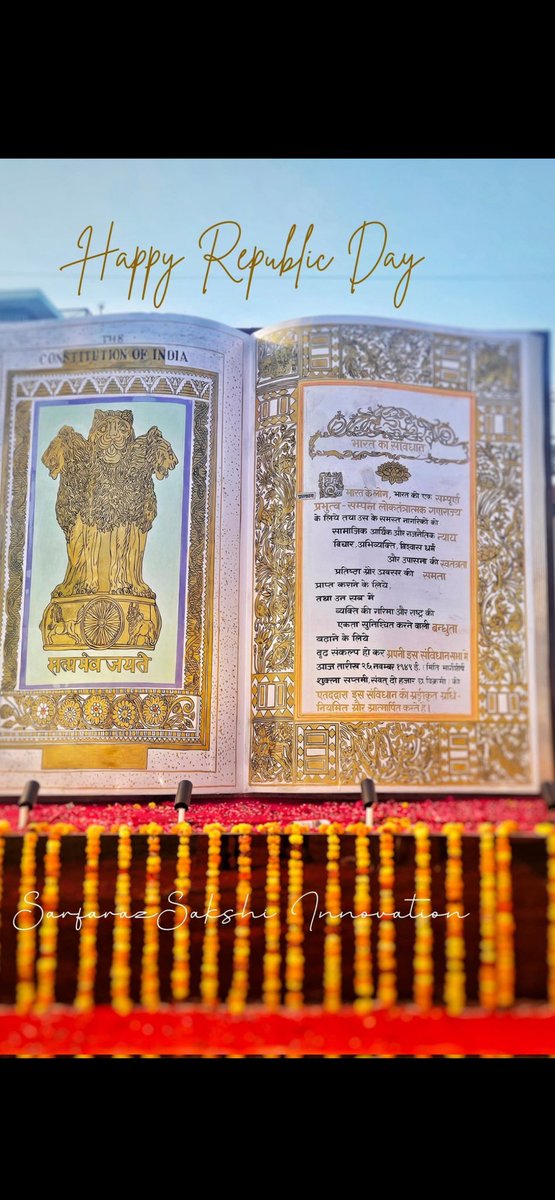 Happy Republic Day
THE
CONSTITUTION OF INDIA
सत्यमेव जयते
भारत का संविधान
भारत के लोग, भारत को एक सम्पूर्ण
प्रभुत्व-सम्पन्न लोकतंत्रात्मक गणराज्य
के लिये तथा उस के समस्त नागरिकों को
सामाजिक आर्थिक और राजनैतिक न्याय
विचार, अभिव्यक्ति, विश्वास धर्म
और उपासना की स्वतंत्रता
प्रतिष्ठा और अवसर की समता
प्राप्त कराने के लिये,
तथा उन सब में
व्यक्ति की गरिमा और राष्ट्र की
एकता सुनिश्चित करने वाली बन्धुता
बढ़ाने के लिये
दृढ संकल्प हो कर अपनी इस संविधान सभा में
आज तारीख २६ नवम्बर १९४९ ई. (मिति मार्गशीर्ष
शुक्ला सप्तमी, संवत् दो हजार छ विक्रमी) को
एतदद्वारा इस संविधान को अङ्गीकृत अधि-
नियमित और आत्मार्पित करते हैं।
Sarfaraz Sakshi Innovation